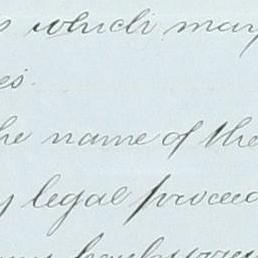 which may
es.
he name of the
y legal proceed